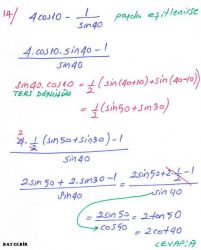 14/ 4cos10 - 1/sin40 payda eşitlenirse
4.cos10.sin40-1 / sin40
sin40.cos10 = 1/2 (sin(40+10)+sin(40-10))
TERS DÖNÜŞÜM
= 1/2 (sin50+sin30)
2 4.1/2 (sin50+sin30)-1 / sin40
2sin50+2.sin30-1 / sin40 = 2sin50+2.1/2-1 / sin40
= 2sin50 / cos50 = 2tan50
= 2cot40
CEVAP:A
BAYÇEBİR